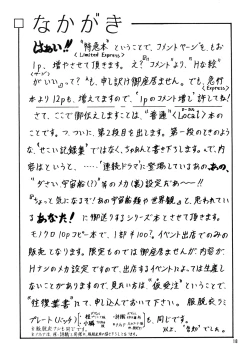 □なかがき
はぁい!! "特急本"ということで、コメントページを、もお
(Limited Express)
1p、増やさせて頂きます。え?"コメントより、Hな絵
(ページ)
がいい。"って?"も、申し訳け御座居ません。でも、急行
(Express)
本より12pも、増えてますので、"1pのコメント増し"許してね!
さて、ここで御伝えしますことは、"普通"<Local>本の
ことです。つ、ついに、第2段目を出します。第一段のときのよう
な、"せこい記録集"ではなく、ちゃんと書き下ろします。で、内
容はというと、……"連続ドラマに登場しているあの、あの、
"ダさい、宇宙船(!?)等のメカ(裏)設定だぁ〜〜!!
『ちょっと気になるぞ!あの宇宙船類や世界観』と、思われてい
る あなた! に御送りするシリーズ本とさせて頂きます。
モノクロ10pコピー本で、1部¥100?。イベント出店でのみの
販売となります。限定ものでは御座居ませんが、内容が
Hナシのメカ設定ですので、出店するイベントによっては生産し
ないことがありますので、見れない方は"仮受注"ということで、
"往復葉書"にて、申し込んでおいて下さい。服脱衣うら
プレート(バッチ)も、同じです。
以上、
18